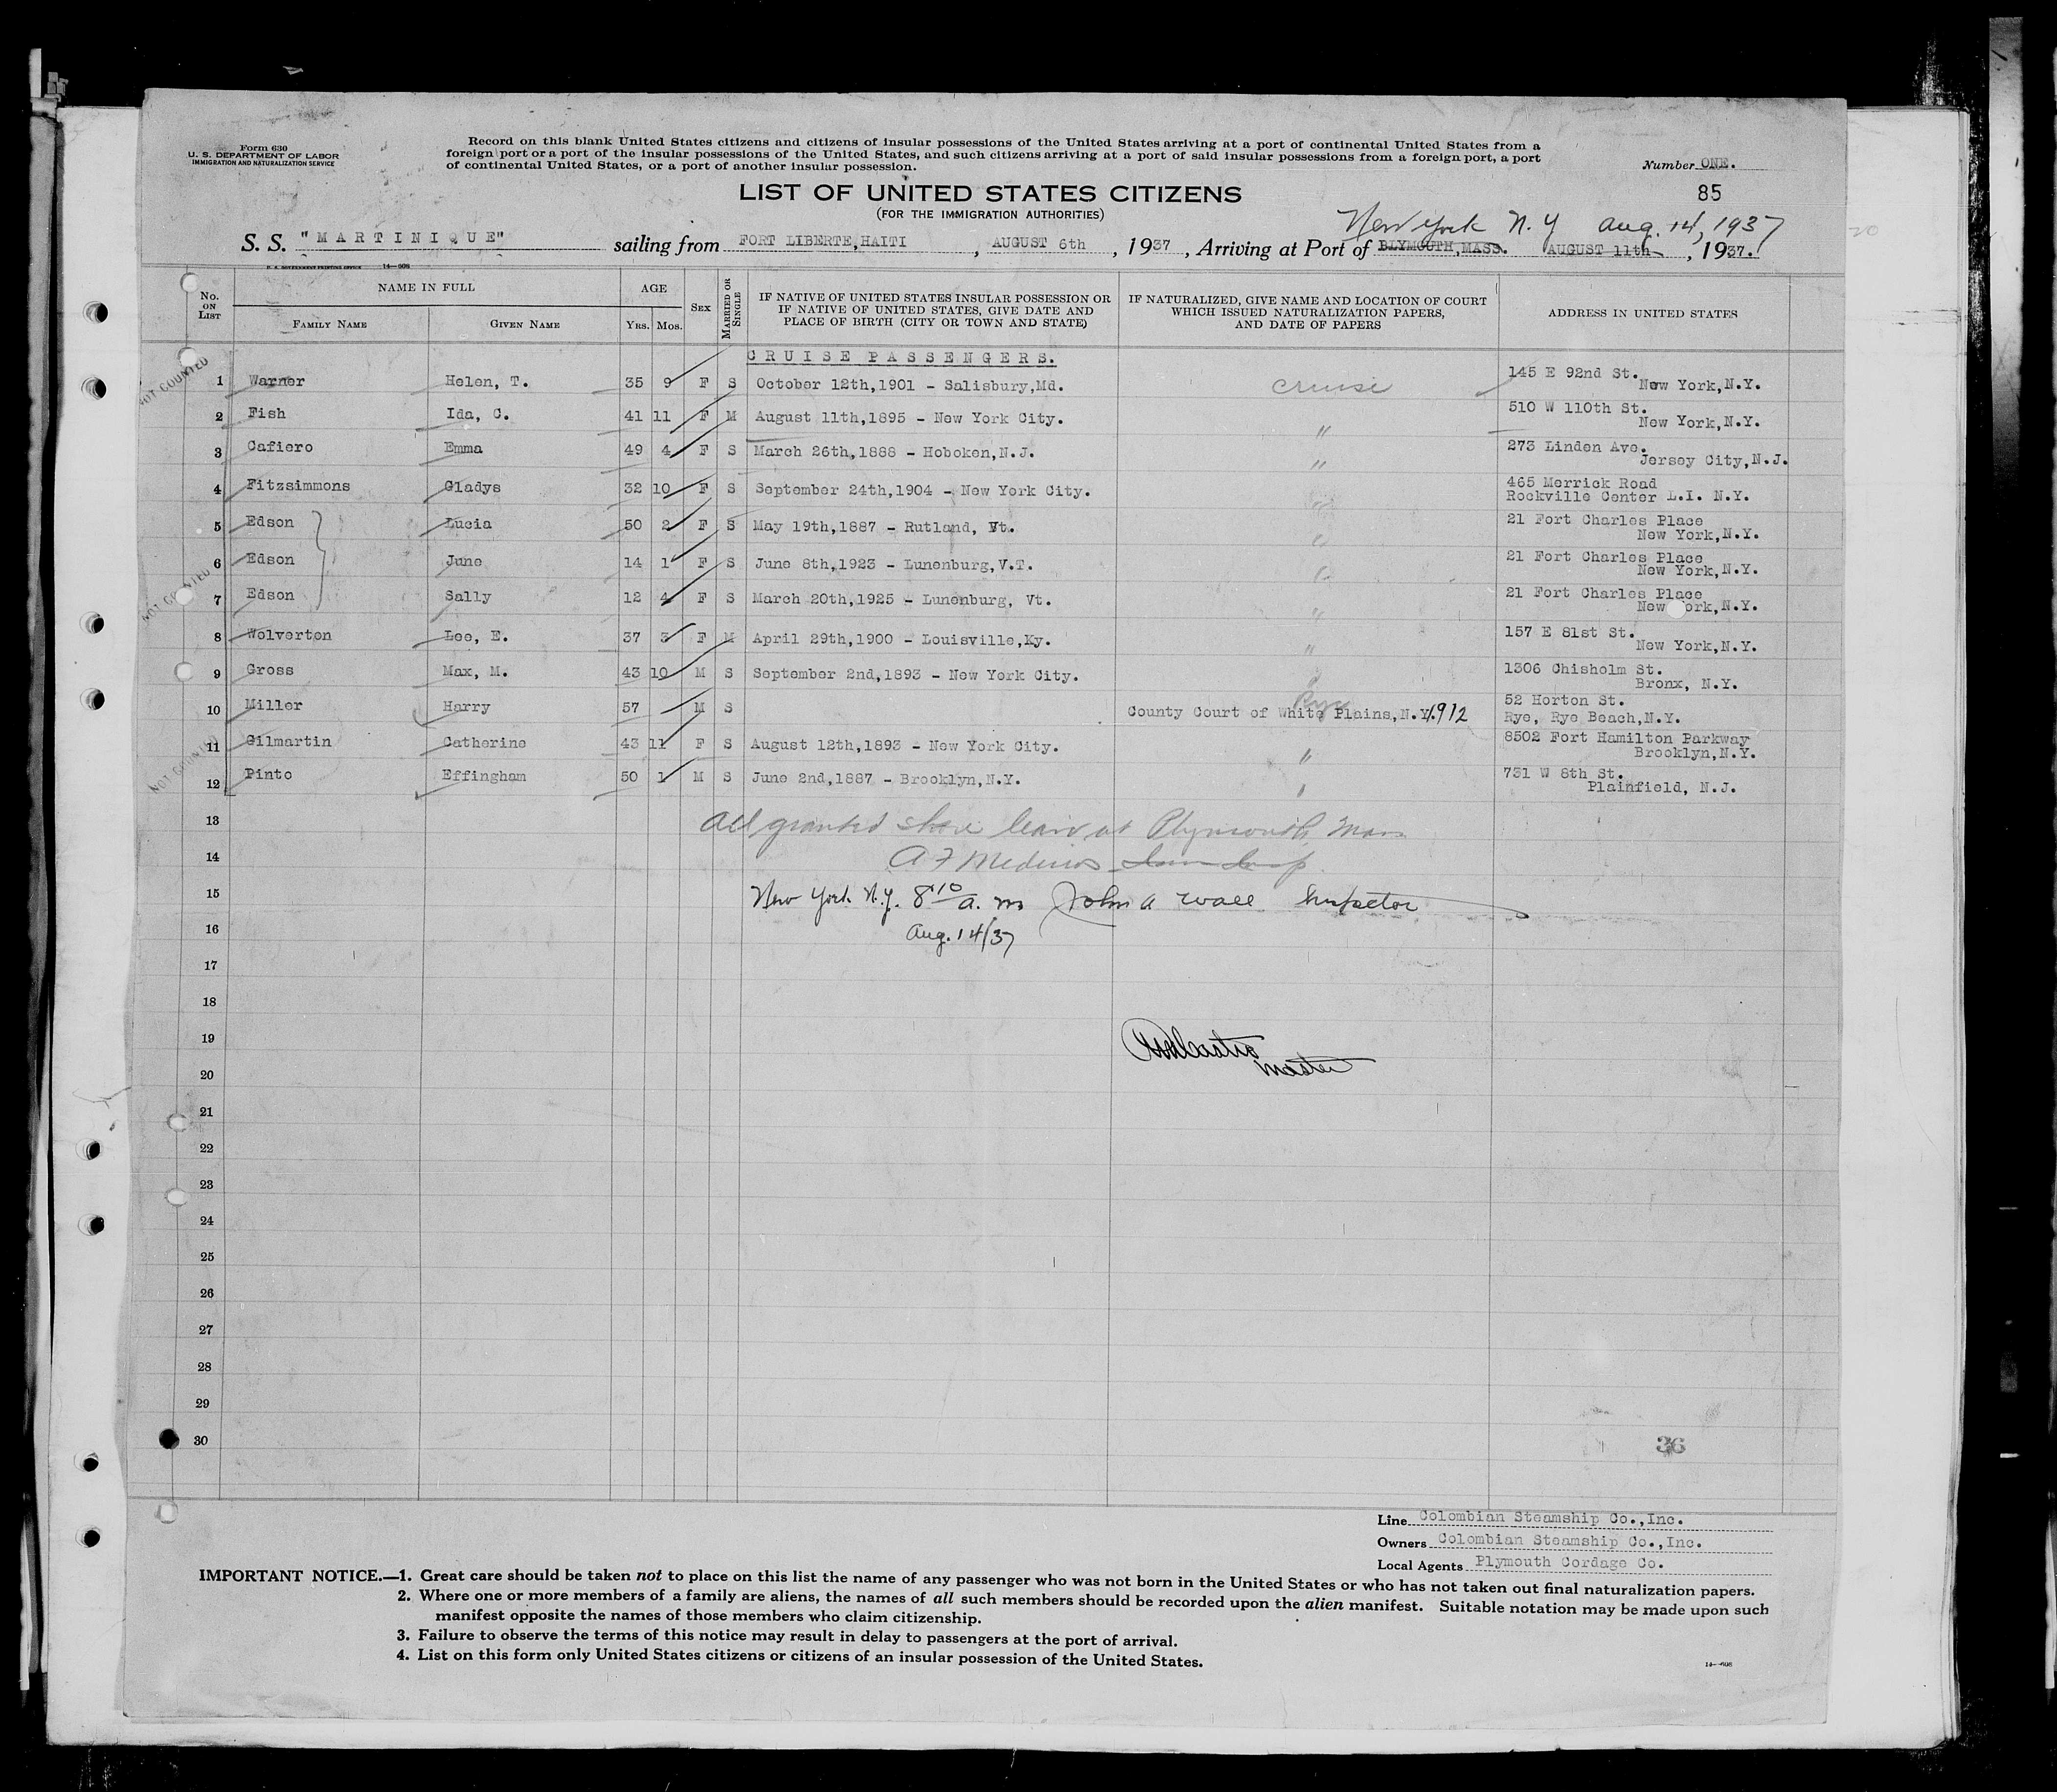 Form 630
U. S. DEPARTMENT OF LABOR
IMMIGRATION AND NATURALIZATION SERVICE
Record on this blank United States citizens and citizens of insular possessions of the United States arriving at a port of continental United States from a
foreign port or a port of the insular possessions of the United States, and such citizens arriving at a port of said insular possessions from a foreign port, a port
of continental United States, or a port of another insular possession.
Number ONE.
LIST OF UNITED STATES CITIZENS
85
(FOR THE IMMIGRATION AUTHORITIES)
New York N.Y Aug. 14, 1937
S. S. "MARTINIQUE" sailing from FORT LIBERTE, HAITI , AUGUST 6th , 1937 , Arriving at Port of PLYMOUTH, MASS. AUGUST 11th , 1937.
U. S. GOVERNMENT PRINTING OFFICE 14—608
No. ON LIST
NAME IN FULL
FAMILY NAME
GIVEN NAME
AGE
YRS. MOS.
SEX
MARRIED OR SINGLE
IF NATIVE OF UNITED STATES INSULAR POSSESSION OR
IF NATIVE OF UNITED STATES, GIVE DATE AND
PLACE OF BIRTH (CITY OR TOWN AND STATE)
IF NATURALIZED, GIVE NAME AND LOCATION OF COURT
WHICH ISSUED NATURALIZATION PAPERS,
AND DATE OF PAPERS
ADDRESS IN UNITED STATES
CRUISE PASSENGERS.
NOT COUNTED
1 Warner Helen, T. 35 9 F S October 12th,1901 - Salisbury,Md. cruise 145 E 92nd St.
New York,N.Y.
2 Fish Ida, C. 41 11 F M August 11th,1895 - New York City. " 510 W 110th St.
New York,N.Y.
3 Cafiero Emma 49 4 F S March 26th,1888 - Hoboken,N.J. " 273 Linden Ave.
Jersey City,N.J.
4 Fitzsimmons Gladys 32 10 F S September 24th,1904 - New York City. " 465 Merrick Road
Rockville Center L.I. N.Y.
5 Edson Lucia 50 2 F S May 19th,1887 - Rutland, Vt. " 21 Fort Charles Place
New York,N.Y.
6 Edson June 14 1 F S June 8th,1923 - Lunenburg,V.T. " 21 Fort Charles Place
New York,N.Y.
NOT COUNTED
7 Edson Sally 12 4 F S March 20th,1925 - Lunenburg, Vt. " 21 Fort Charles Place
New York,N.Y.
8 Wolverton Lee, E. 37 3 F M April 29th,1900 - Louisville,Ky. " 157 E 81st St.
New York,N.Y.
9 Gross Max, M. 43 10 M S September 2nd,1893 - New York City. " 1306 Chisholm St.
Bronx, N.Y.
10 Miller Harry 57 M S County Court of White Plains,N.Y. 1912 52 Horton St.
Rye, Rye Beach,N.Y.
11 Gilmartin Catherine 43 11 F S August 12th,1893 - New York City. " 8502 Fort Hamilton Parkway
Brooklyn,N.Y.
NOT COUNTED
12 Pinto Effingham 50 1 M S June 2nd,1887 - Brooklyn,N.Y. " 731 W 8th St.
Plainfield, N.J.
13 All granted shore leave at Plymouth, Mass
14 A F Medeiros
15 New York N.Y. 8 10 a. m John A Wall Inspector
16 Aug. 14/37
17
18
19
20 Master
21
22
23
24
25
26
27
28
29
30
36
Line Colombian Steamship Co.,Inc.
Owners Colombian Steamship Co.,Inc.
Local Agents Plymouth Cordage Co.
IMPORTANT NOTICE.—1. Great care should be taken not to place on this list the name of any passenger who was not born in the United States or who has not taken out final naturalization papers.
2. Where one or more members of a family are aliens, the names of all such members should be recorded upon the alien manifest. Suitable notation may be made upon such
manifest opposite the names of those members who claim citizenship.
3. Failure to observe the terms of this notice may result in delay to passengers at the port of arrival.
4. List on this form only United States citizens or citizens of an insular possession of the United States.
14—608